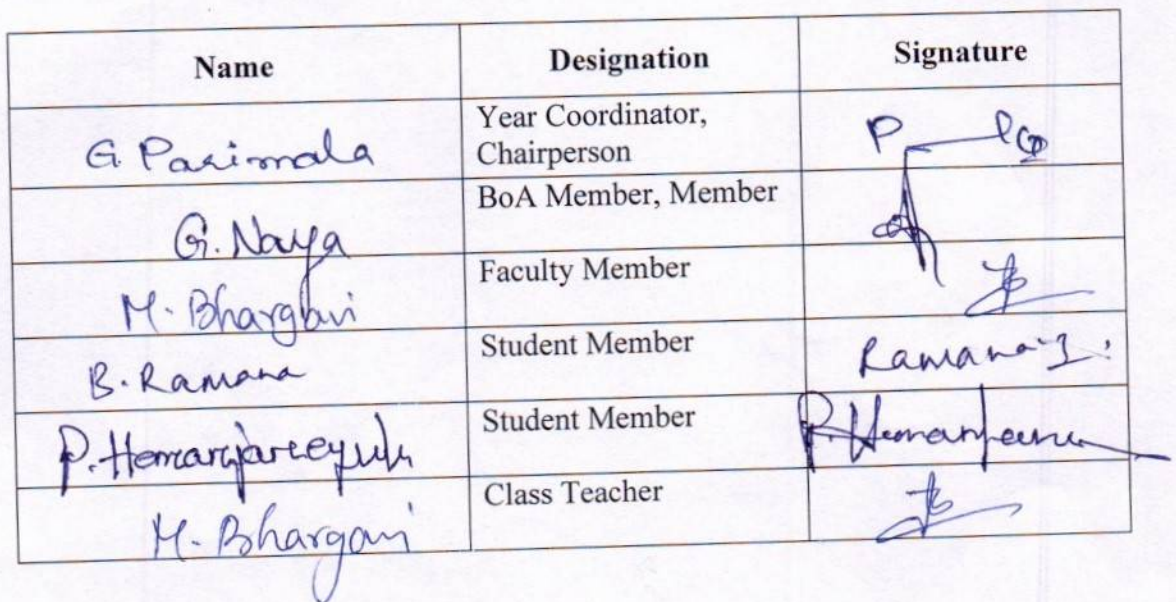 Name Designation Signature
G. Parimala Year Coordinator,
Chairperson
G. Navya BoA Member, Member
M. Bhargavi Faculty Member
B. Ramana Student Member Ramana
P. Student Member P.
M. Bhargavi Class Teacher